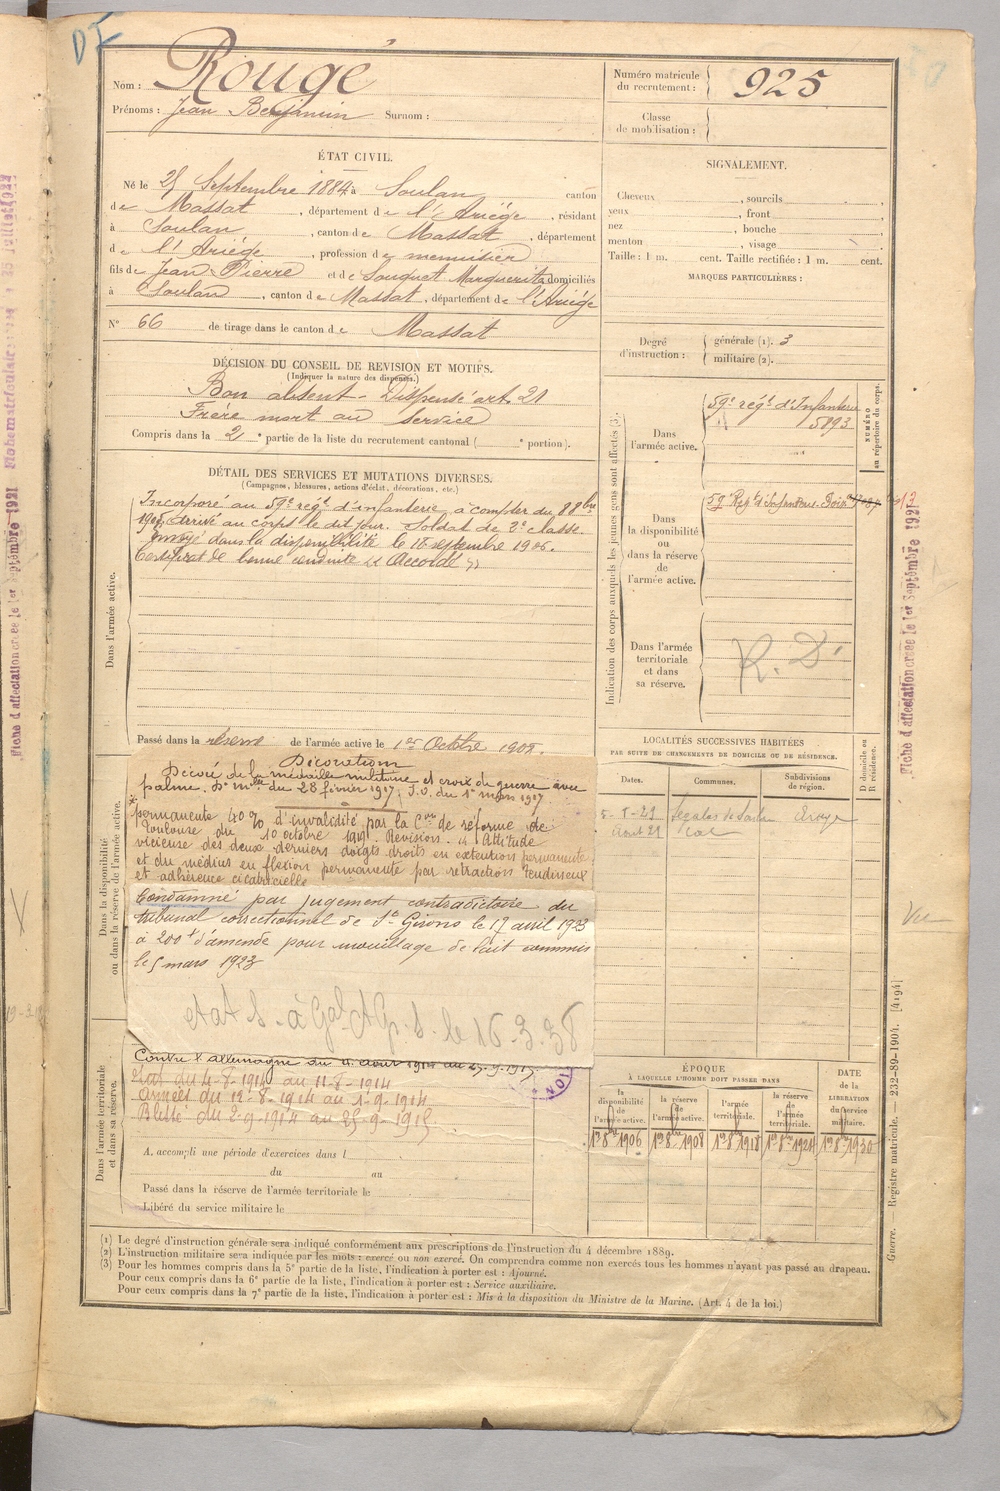 DF
Nom : Rougé
Prénoms : Jean Benjamin Surnom :
Numéro matricule du recrutement : 925
Classe de mobilisation :
ÉTAT CIVIL.
Né le 25 Septembre 1884 à Soulan canton
de Massat, département de l'Ariège, résidant
à Soulan, canton de Massat, département
de l'Ariège, profession de menuisier
fils de Jean Pierre et de Souquet Marguerite domiciliés
à Soulan, canton de Massat, département de l'Ariège
N° 66 de tirage dans le canton de Massat
SIGNALEMENT.
Cheveux , sourcils ,
yeux , front ,
nez , bouche ,
menton , visage
Taille : 1 m. cent. Taille rectifiée : 1 m. cent.
MARQUES PARTICULIÈRES :
Degré d'instruction : générale (1). 3
militaire (2).
DÉCISION DU CONSEIL DE REVISION ET MOTIFS.
(Indiquer la nature des dispenses.)
Bon absent - Dispensé art. 21
Frère mort au service
Compris dans la 2e partie de la liste du recrutement cantonal ( e portion).
DÉTAIL DES SERVICES ET MUTATIONS DIVERSES.
(Campagnes, blessures, actions d'éclat, décorations, etc.)
Dans l'armée active.
Incorporé au 59e régt d'infanterie à compter du 8 8bre
1905. Arrivé au corps le dit jour. Soldat de 2e classe.
Envoyé dans la disponibilité le 18 septembre 1906.
Certificat de bonne conduite "Accordé"
Passé dans la réserve de l'armée active le 1er Octobre 1908.
Indication des corps auxquels les jeunes gens sont affectés (3).
NUMÉRO au répertoire du corps.
Dans l'armée active.
59e régt d'Infanterie
5893
Dans la disponibilité ou dans la réserve de l'armée active.
59 Regt d'Infanterie. Foix
Dans l'armée territoriale et dans sa réserve.
R. D.
Fiche d'affectation créée le 1er Septembre 1921
Fiche d'affectation créée le 1er Septembre 1921
Dans la disponibilité ou dans la réserve de l'armée active.
Décorations
Décoré de la médaille militaire et croix de guerre avec
palme. Don mlle du 28 février 1917, J.O. du 1er mars 1917
permanente 40 % d'invalidité par la Con de réforme de
Toulouse du 10 octobre 1919. Révision. 1° Attitude
vicieuse des deux derniers doigts droits en extention permanente
et du médius en flexion permanente par rétraction tendineuse
et adhérence cicatricielle
Condamné par jugement contradictoire du
tribunal correctionnel de St Girons le 17 avril 1923
à 200f d'amende pour mouillage de lait commis
le 5 mars 1923
Contre l'allemagne du 4 aout 1914 au 25-9-1915
Etat du 4-8-1914 au 11-8-1914
Armées du 12-8-1914 au 1-9-1914
Blessé du 2-9-1914 au 25-9-1915
Dans l'armée territoriale et dans sa réserve.
A. accompli une période d'exercices dans l
du au
Passé dans la réserve de l'armée territoriale le
Libéré du service militaire le
LOCALITÉS SUCCESSIVES HABITÉES
PAR SUITE DE CHANGEMENTS DE DOMICILE OU DE RÉSIDENCE.
Dates. Communes. Subdivisions de région. D domicile ou R résidence.
Vu
ÉPOQUE
À LAQUELLE L'HOMME DOIT PASSER DANS
DATE de la LIBÉRATION du service militaire.
la disponibilité de l'armée active. la réserve de l'armée active. l'armée territoriale. la réserve de l'armée territoriale.
1er 8bre 1906 1er 8bre 1908 1er 8bre 1918 1er 8bre 1924 1er 8bre 1930
Guerre. — Registre matricule. — 232-89-1904. [4194]
(1) Le degré d'instruction générale sera indiqué conformément aux prescriptions de l'instruction du 4 décembre 1889.
(2) L'instruction militaire sera indiquée par les mots : exercé ou non exercé. On comprendra comme non exercés tous les hommes n'ayant pas passé au drapeau.
(3) Pour les hommes compris dans la 5e partie de la liste, l'indication à porter est : Ajourné.
Pour ceux compris dans la 6e partie de la liste, l'indication à porter est : Service auxiliaire.
Pour ceux compris dans la 7e partie de la liste, l'indication à porter est : Mis à la disposition du Ministre de la Marine. (Art. 4 de la loi.)